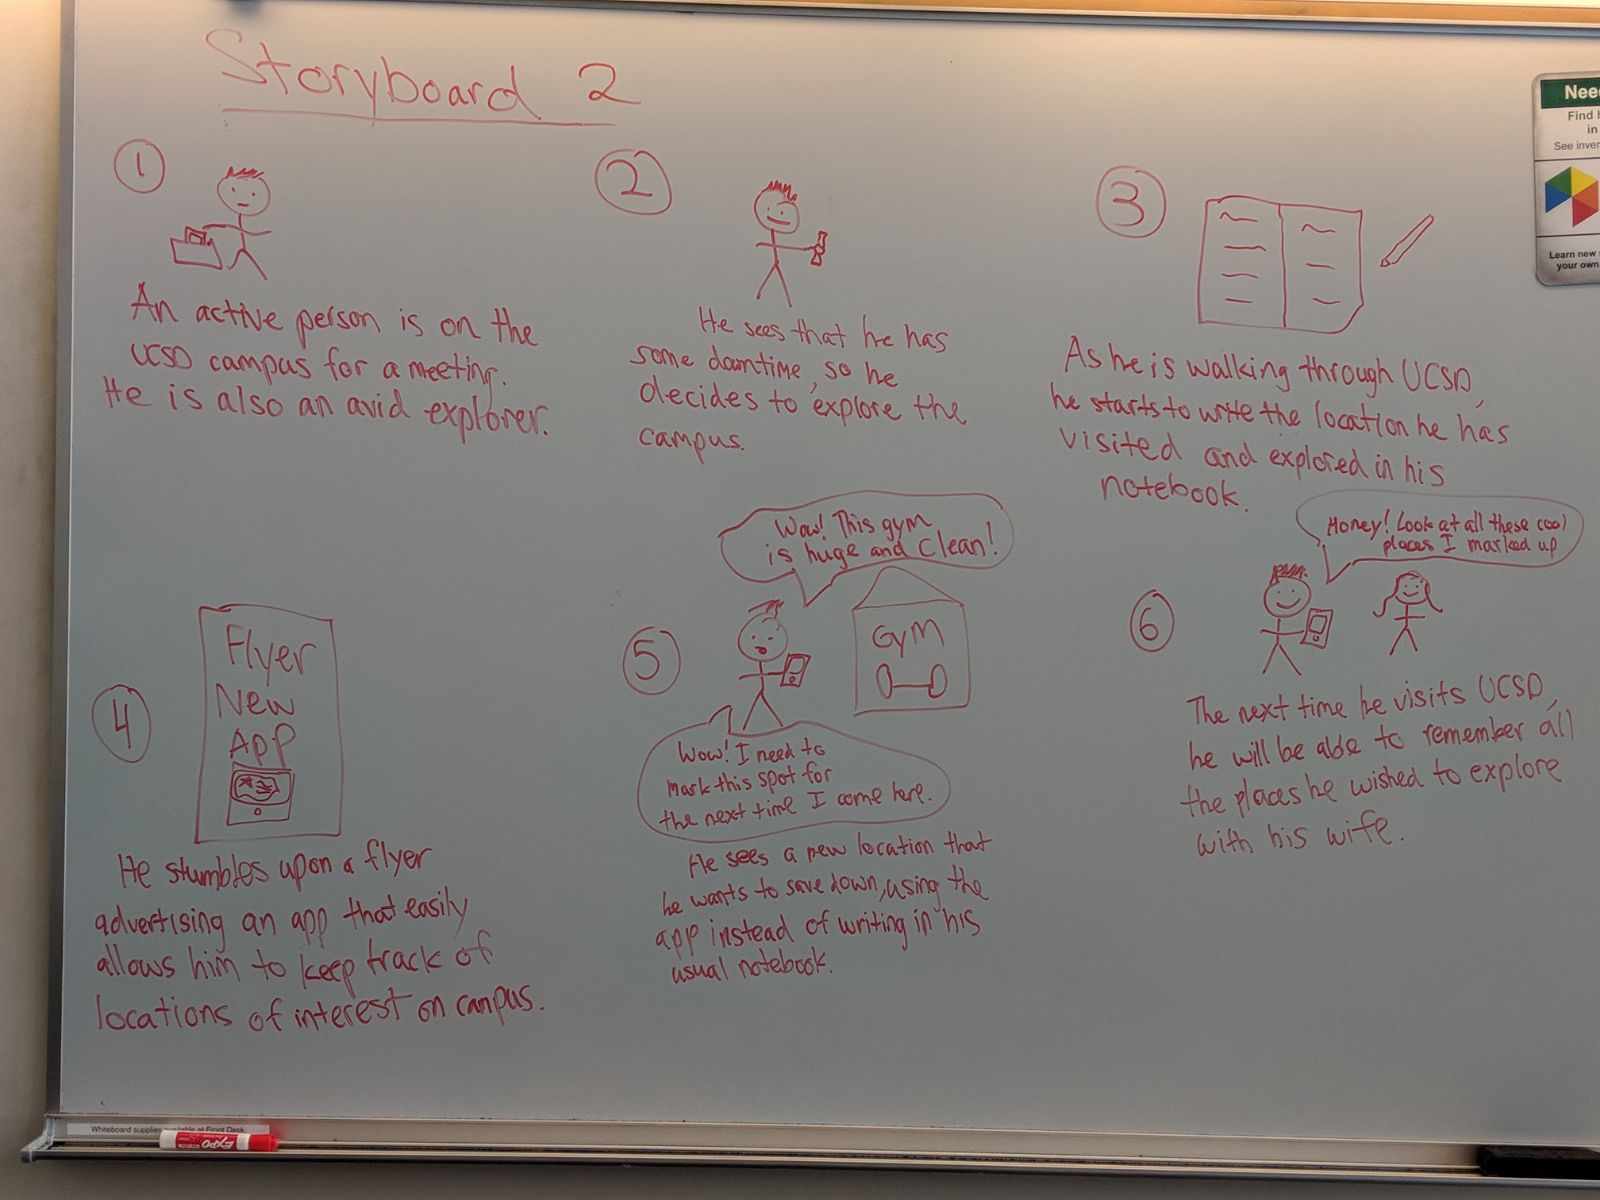 Storyboard 2
1
An active person is on the
UCSD campus for a meeting.
He is also an avid explorer.
2
He sees that he has
some downtime, so he
decides to explore the
campus.
3
As he is walking through UCSD,
he starts to write the location he has
visited and explored in his
notebook.
4
Flyer
New
App
He stumbles upon a flyer
advertising an app that easily
allows him to keep track of
locations of interest on campus.
5
Wow! This gym
is huge and clean!
GYM
Wow! I need to
mark this spot for
the next time I come here.
He sees a new location that
he wants to save down, using the
app instead of writing in his
usual notebook.
6
Honey! Look at all these cool
places I marked up
The next time he visits UCSD,
he will be able to remember all
the places he wished to explore
with his wife.
Find
in
Learn new
your own
Whiteboard supplies available at Front Desk.
EXPO